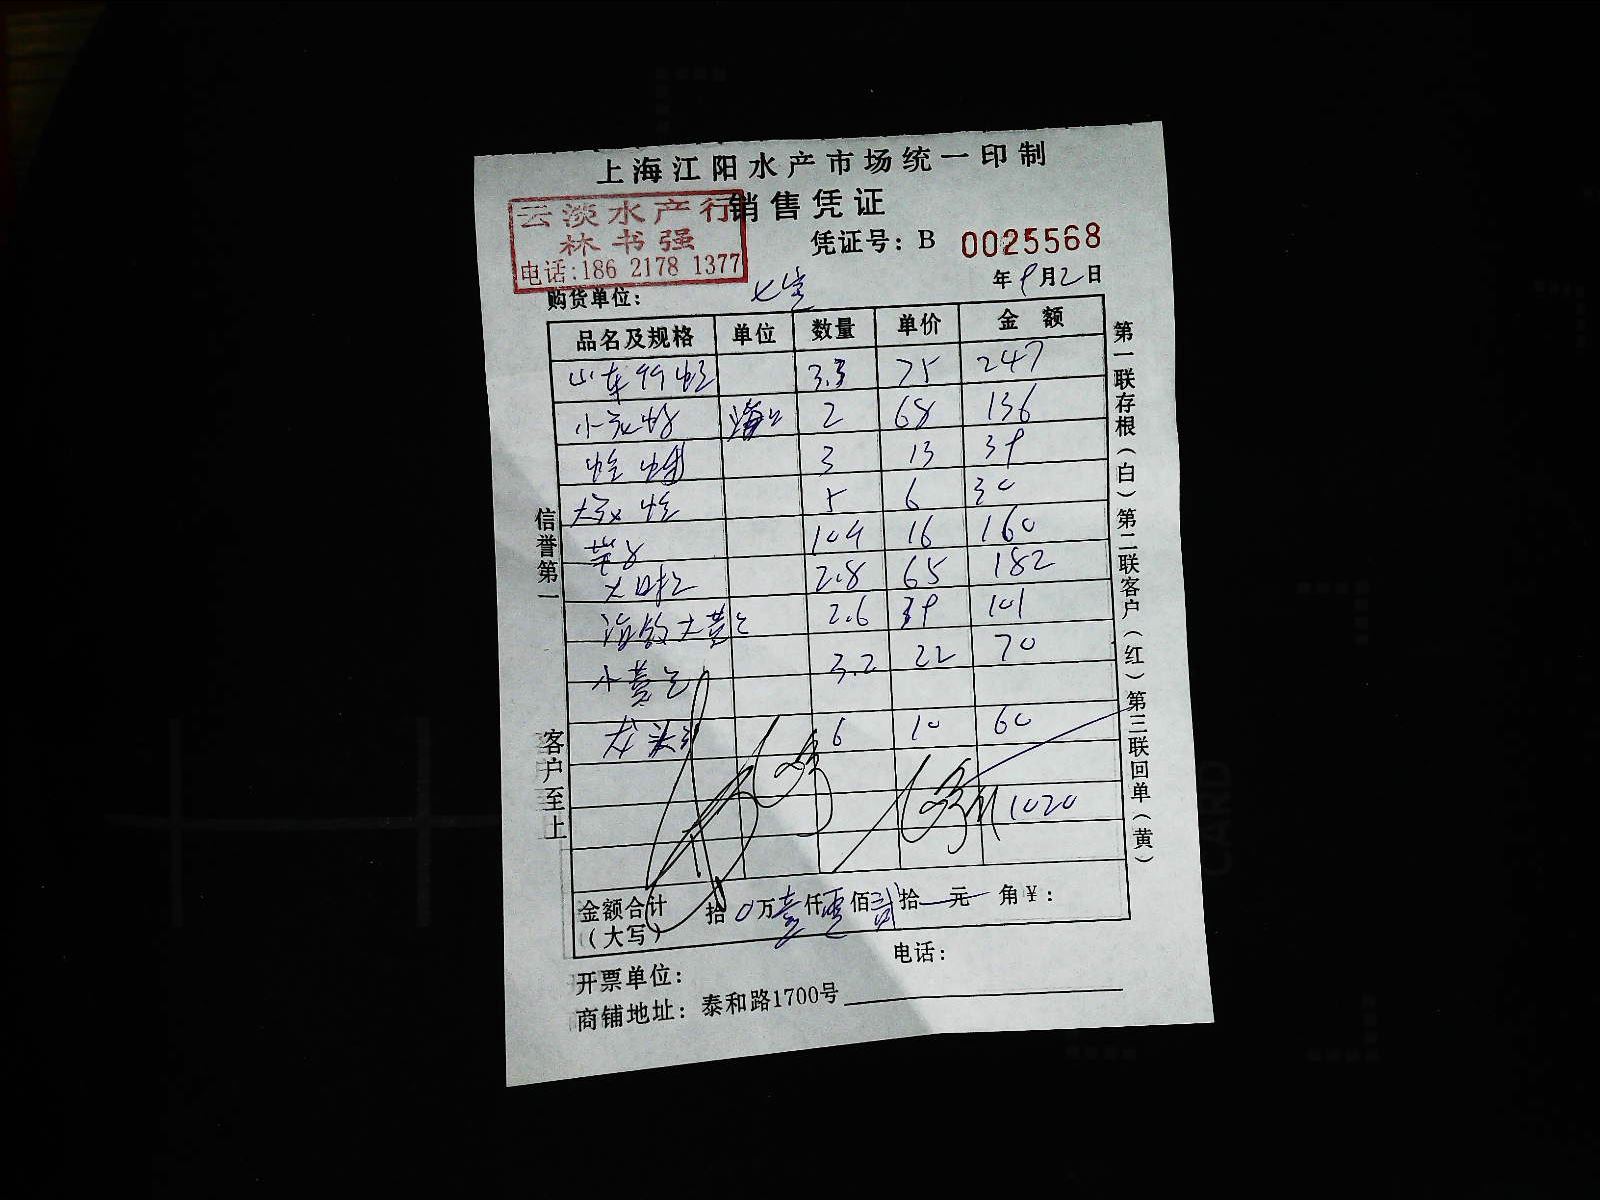 上海江阳水产市场统一印制
云淡水产行
销售凭证
林书强
电话:186 2178 1377
凭证号：B 0025568
年9月2日
购货单位：
品名及规格 单位 数量 单价 金 额
山东 3.3 75 247
小 2 68 136
3 13 39
5 6 30
16 160
2.8 65 182
大黄 2.6 39 101
小黄 3.2 22 70
龙头 6 10 60
1020
金额合计
（大写）
拾0万壹仟零佰贰拾 元 角￥：
开票单位：
电话：
商铺地址：泰和路1700号
信誉第一
客户至上
第一联存根（白）第二联客户（红）第三联回单（黄）